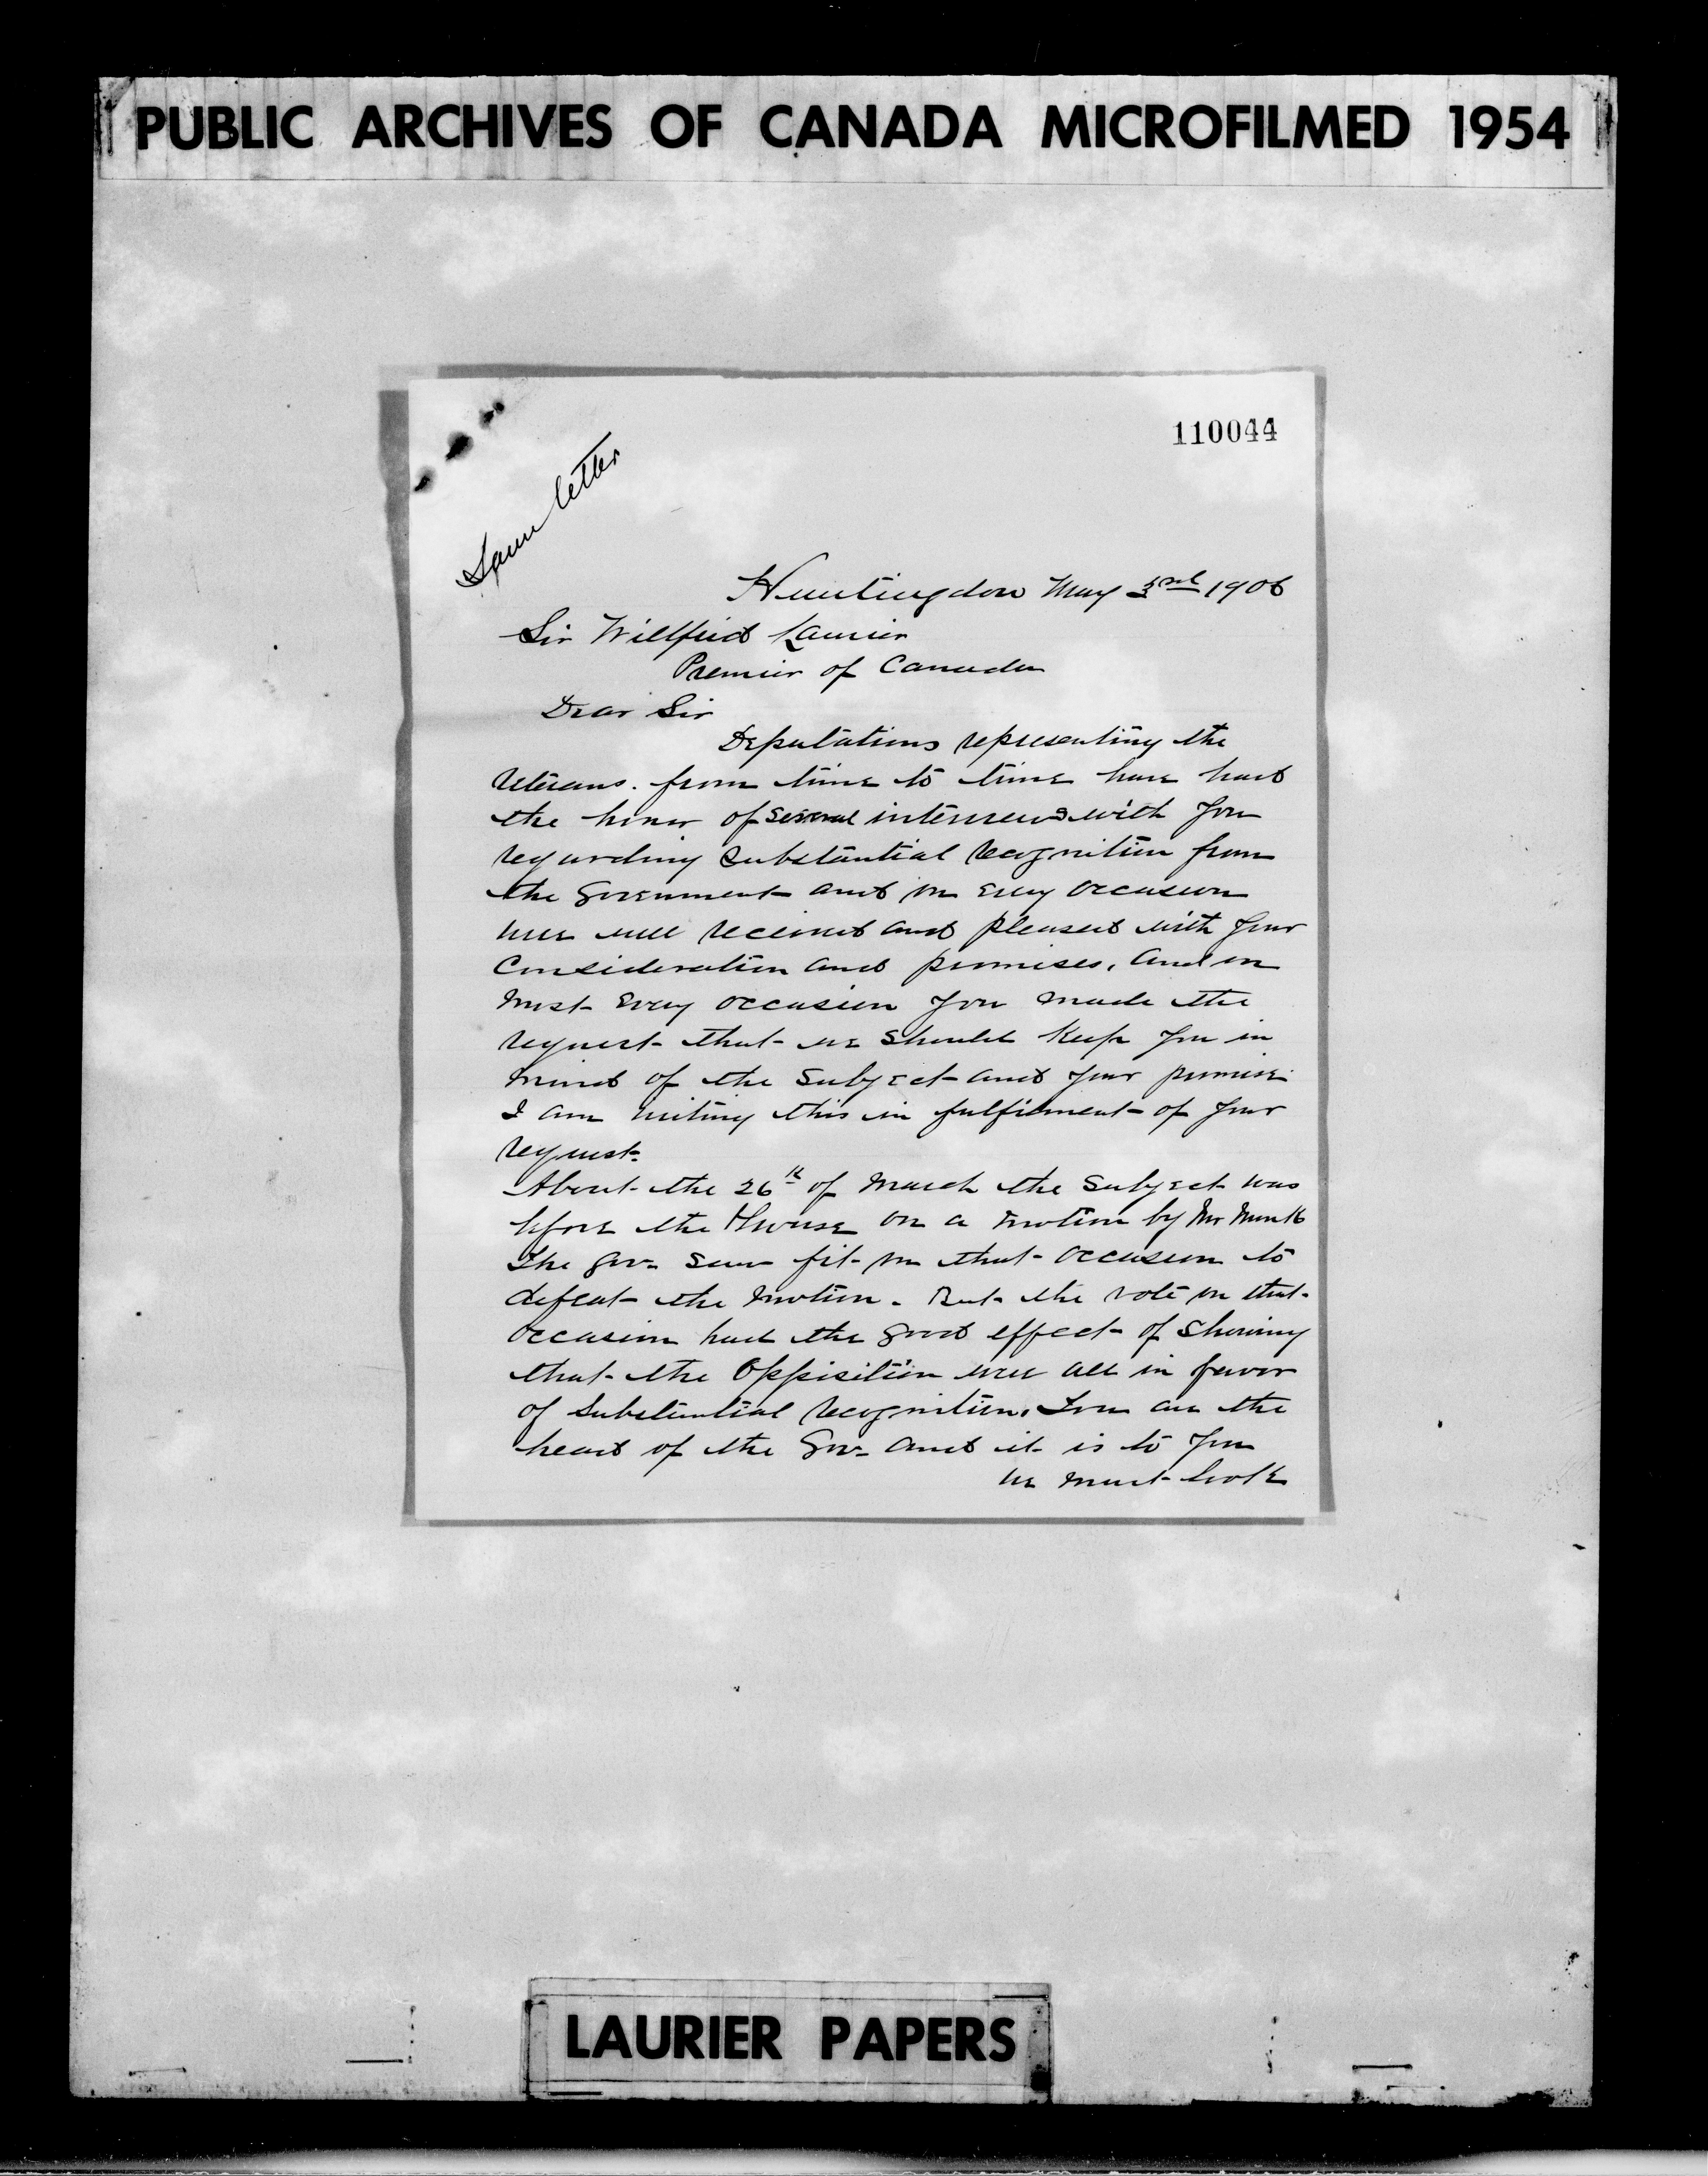 PUBLIC ARCHIVES OF CANADA MICROFILMED 1954
110044
Same letter
Huntingdon May 3rd 1906
Sir Wilfrid Laurier
Premier of Canada
Dear Sir
Deputations representing the
Veterans. from time to time have had
the honor of several interviews with you
regarding substantial recognition from
the Government and on every occasion
were well received and pleased with your
consideration and promises. And on
most every occasion you made the
request that we should keep you in
mind of the subject and your promise
I am writing this in fulfilment of your
request.
About the 26th of March the subject was
before the House on a motion by Mr Monk
The Gov. saw fit on that occasion to
defeat the motion. But the vote on that
occasion had the good effect of showing
that the Opposition were all in favor
of substantial recognition. You are the
head of the Gov. and it is to you
we must look
LAURIER PAPERS